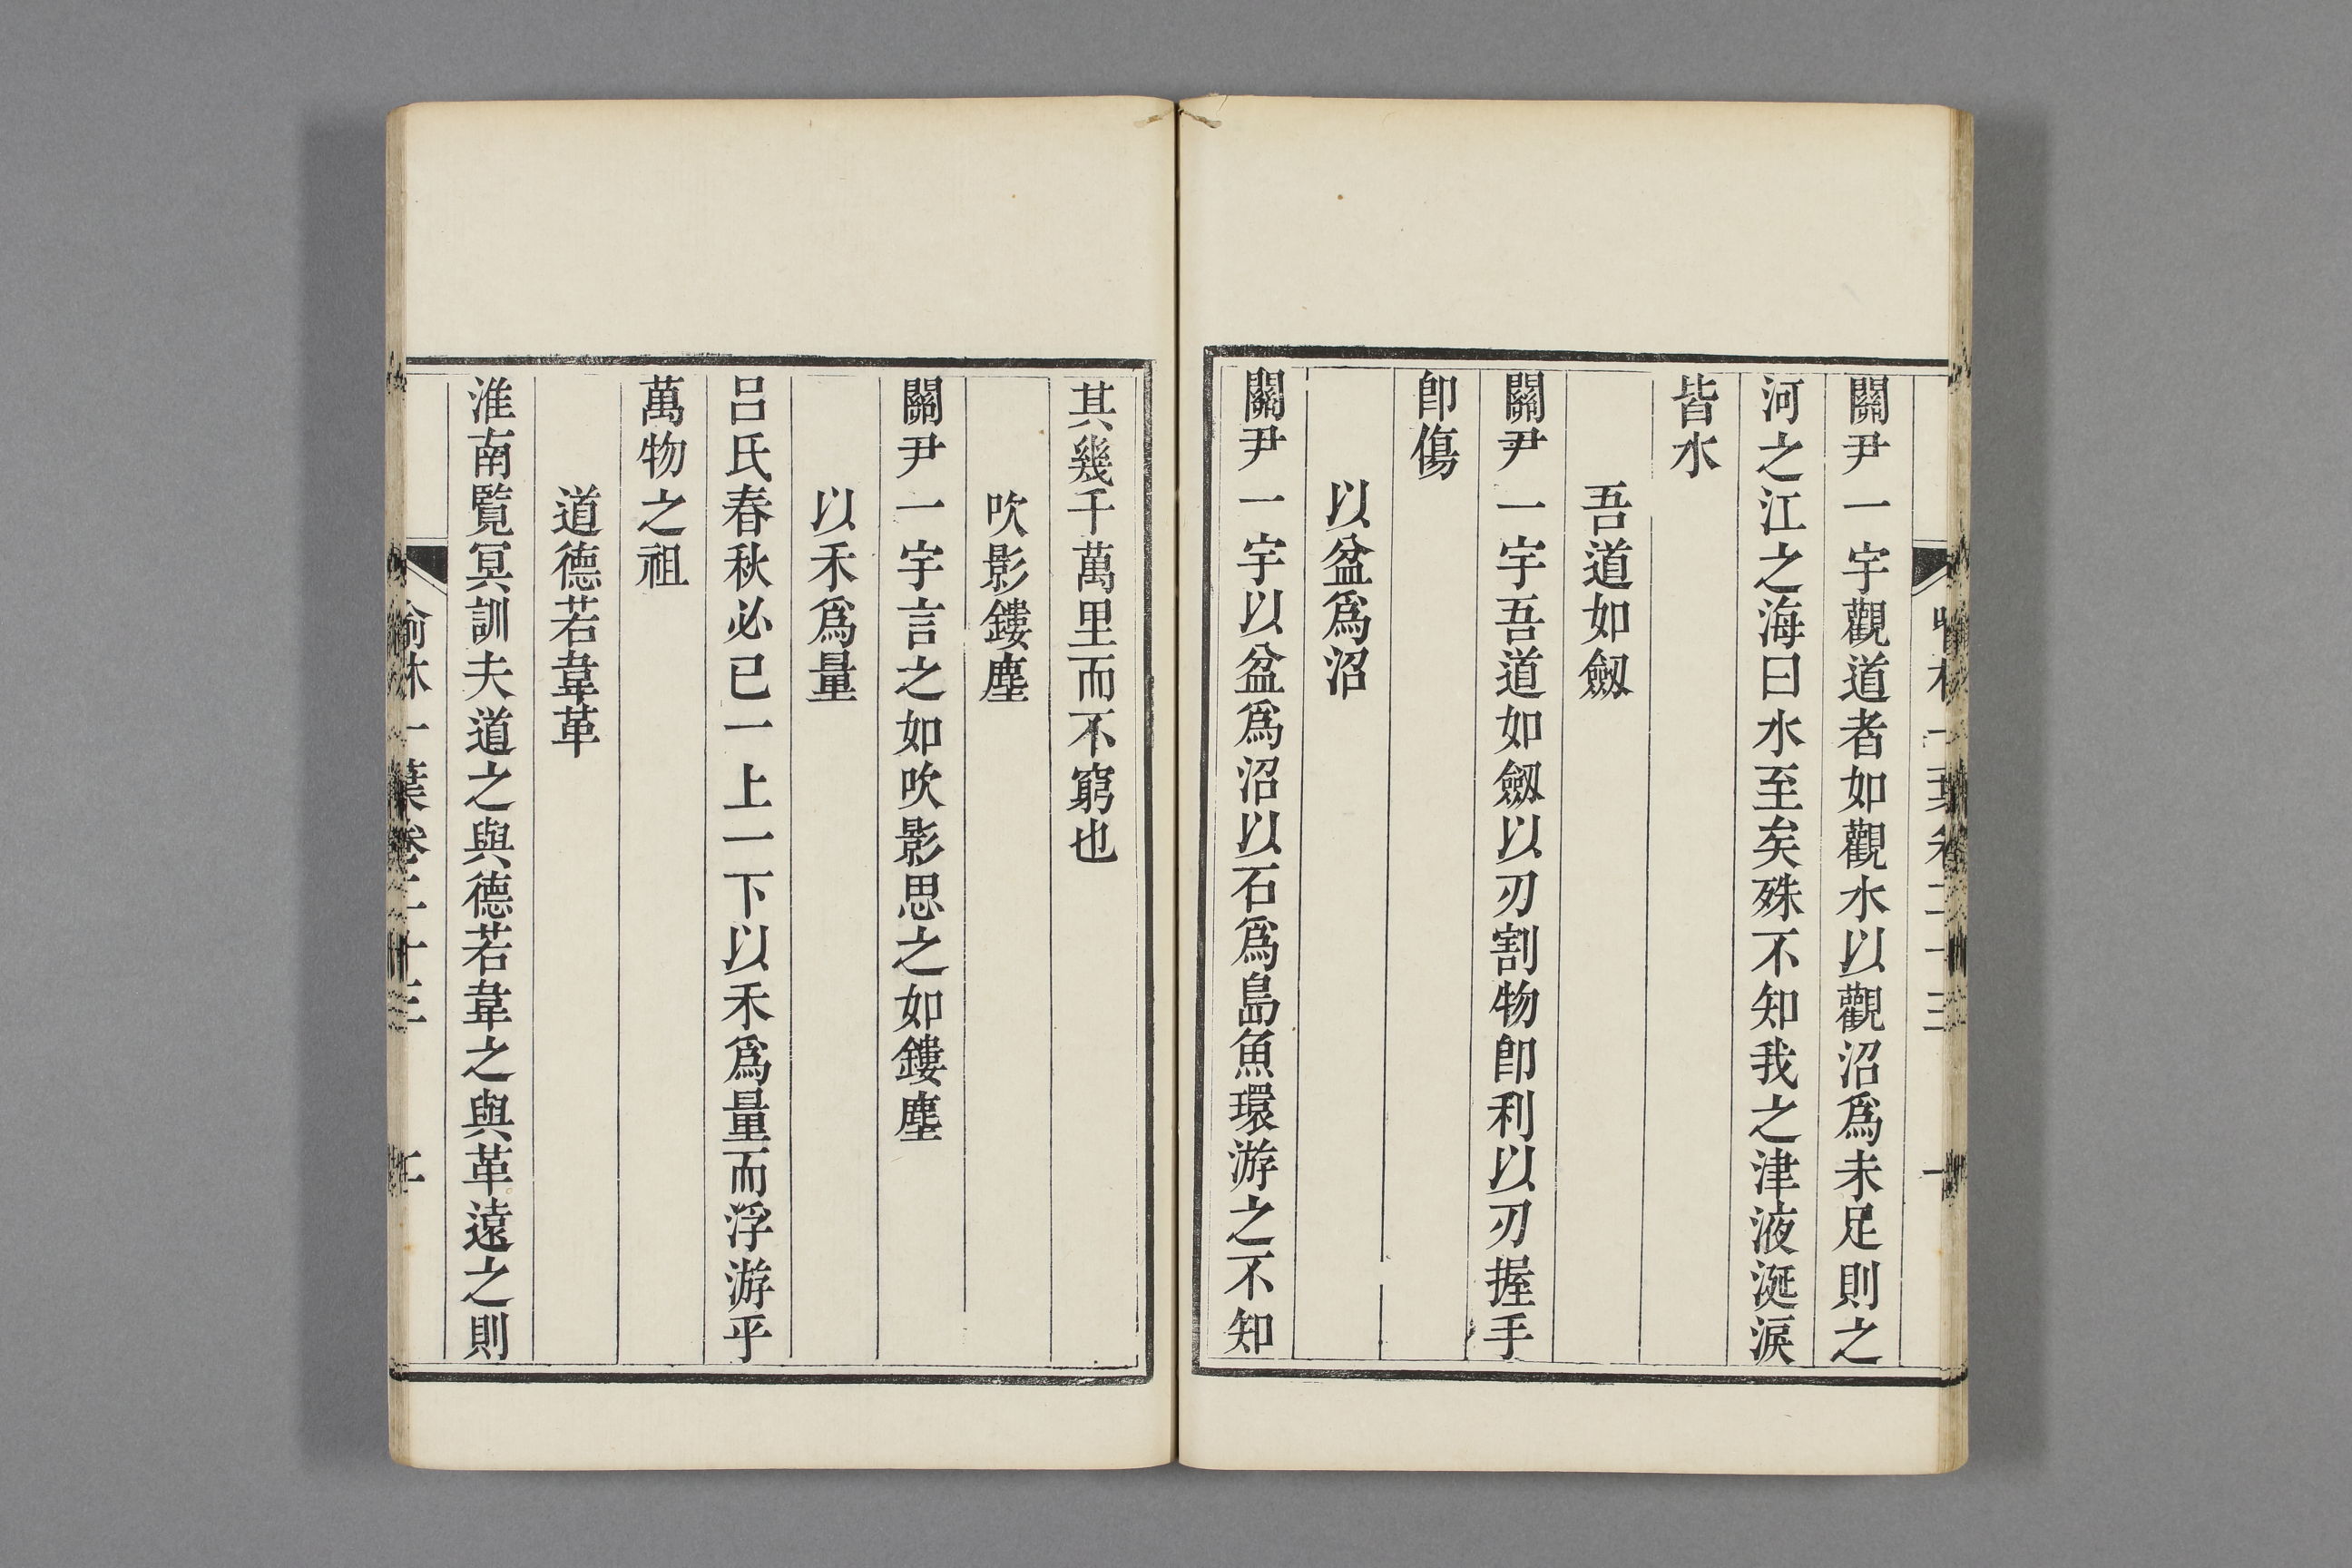 關尹一宇觀道者如觀水以觀沼爲未足則之
河之江之海曰水至矣殊不知我之津液涎淚
皆水
吾道如劒
關尹一宇吾道如劒以刃割物卽利以刃握手
卽傷
以盆爲沼
關尹一宇以盆爲沼以石爲島魚環游之不知
其幾千萬里而不窮也
吹影鏤塵
關尹一宇言之如吹影思之如鏤塵
以禾爲量
呂氏春秋必已一上一下以禾爲量而浮游乎
萬物之祖
道德若韋革
淮南覽冥訓夫道之與德若韋之與革遠之則
喻林一葉卷二十三 二